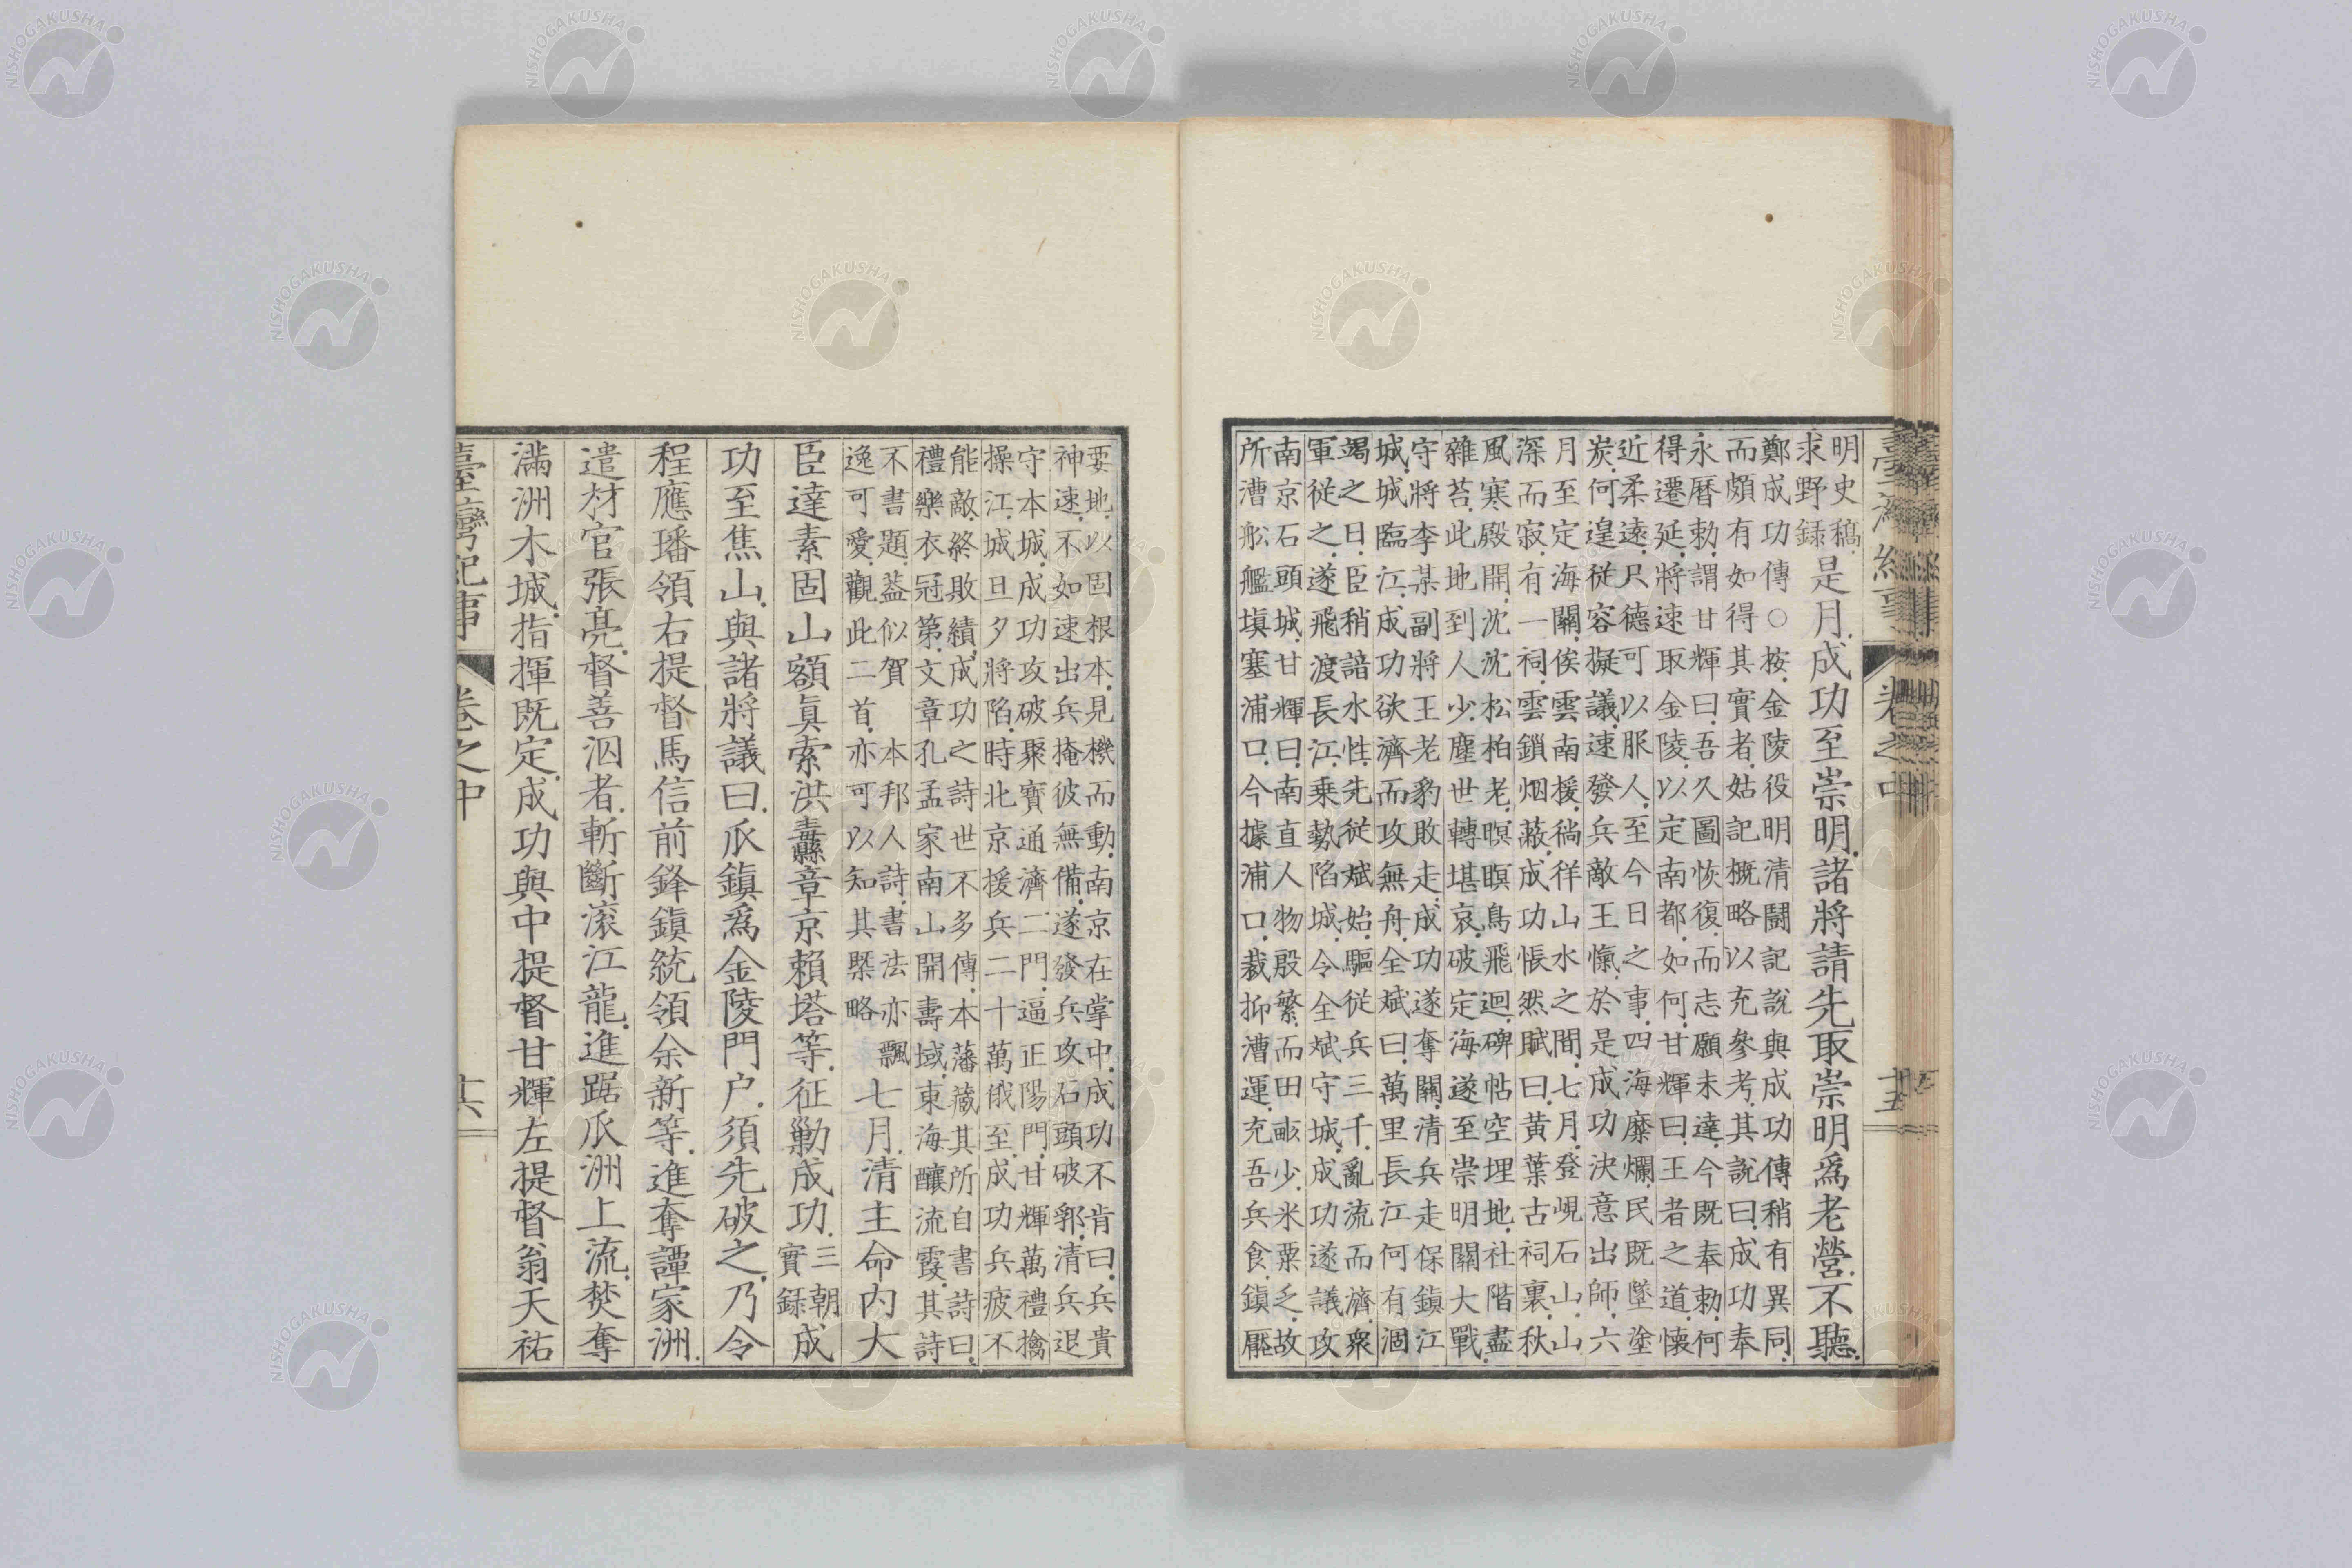 臺灣紀事 卷之中 十五
明史稿
求野録
是月成功至崇明諸將請先取崇明爲老營不聽
鄭成功傳○按金陵役明清鬪記說與成功傳稍有異同
而頗有如得其實者姑記概略以充參考其說曰成功奉
永曆勅謂甘輝曰吾久圖恢復而志願未達今既奉勅何
得遷延將速取金陵以定南都如何甘輝曰王者之道懷
近柔遠尺德可以服人至今日之事四海糜爛民既墜塗
炭何遑從容擬議速發兵敵王愾於是成功決意出師六
月至定海關俟雲南援徜徉山水之間七月登峴石山山
深而寂有一祠雲鎖烟蔽成功悵然賦曰黄葉古祠裏秋
風寒殿開沈沈松柏老暝暝鳥飛迴碑帖空埋地社階盡
雜苔此地到人少塵世轉堪哀破定海遂至崇明關大戰
守將李某副將王老豹敗走成功遂奪關清兵走保鎮江
城城臨江成功欲濟而攻無舟全斌曰萬里長江何有涸
竭之日臣稍諳水性先從斌始驅從兵三千亂流而濟衆
軍從之遂飛渡長江乗勢陷城令全斌守城成功遂議攻
南京石頭城甘輝曰南直人物殷繁而田畝少米粟乏故
所漕舩艦填塞浦口今據浦口裁抑漕運充吾兵食鎮壓
要地以固根本見機而動南京在掌中成功不肯曰兵貴
神速不如速出兵掩彼無備遂發兵攻石頭破郛清兵退
守本城成功攻破聚寳通濟二門逼正陽門甘輝萬禮擒
操江城旦夕將陷時北京援兵二十萬俄至成功兵疲不
能敵終敗績成功之詩世不多傳本藩藏其所自書詩曰
禮樂衣冠第文章孔孟家南山開壽域東海釀流霞其詩
不書題葢似賀 本邦人詩書法亦飄
逸可愛觀此二首亦可以知其槩略
七月清主命内大
臣達素固山額眞索洪纛章京賴塔等征勦成功三朝實録成
功至焦山與諸將議曰瓜鎮爲金陵門户須先破之乃令
程應璠領右提督馬信前鋒鎮統領余新等進奪譚家洲
遣材官張亮督善泅者斬斷滚江龍進踞瓜洲上流焚奪
滿洲木城指揮既定成功與中提督甘輝左提督翁天祐
臺灣紀事 卷之中 十六